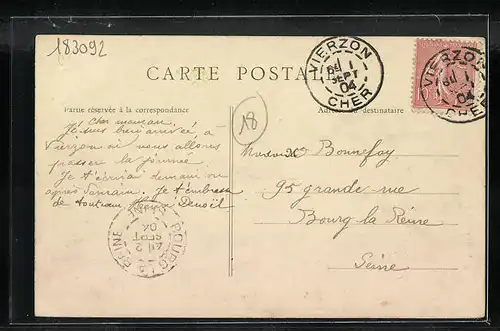 183092
CARTE POSTALE
VIERZON
1
SEPT
04
CHER
VIERZON
1
04
CHER
Partie réservée à la correspondance
Adresse du destinataire
18
Cher maman,
Je suis bien arrivée à
Vierzon où nous allons
passer la journée.
Je t'écrirai demain ou
après demain. Je t'embrasse
de tout Denoël
Madame Bonnefoy
95 grande rue
Bourg la Reine
Seine
BOURG LA REINE
SEINE
2
SEPT
04